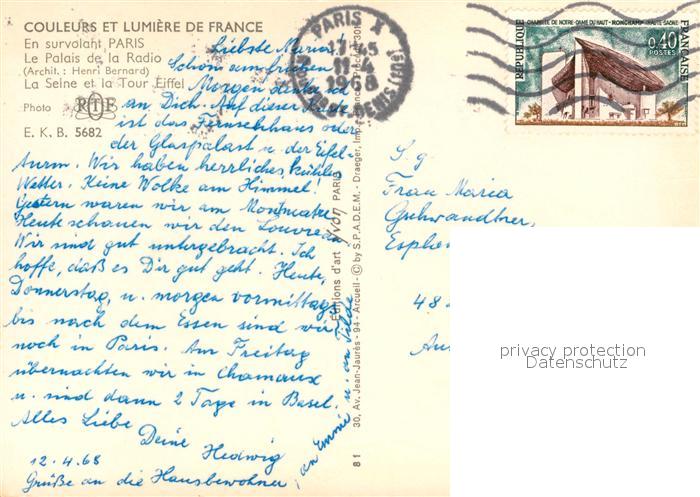 COULEURS ET LUMIÈRE DE FRANCE
En survolant PARIS
Le Palais de la Radio
(Archit. : Henri Bernard)
La Seine et la Tour Eiffel
Photo RTF
E. K. B. 5682
Liebste Mama!
Schon am frühen
Morgen denke ich
an Dich. Auf dieser Karte
ist das Fernsehhaus oder
der Glaspalast u. der Eifel-
turm. Wir haben herrliches, kühles
Wetter. Keine Wolke am Himmel!
Gestern waren wir am Montmatre
Heute schauen wir den Louvre an
Wir sind gut untergebracht. Ich
hoffe, daß es Dir gut geht. Heute,
Donnerstag, u. morgen vormittags
bis nach dem Essen sind wir
noch in Paris. Am Freitag
übernachten wir in Chamaux
u. sind dann 2 Tage in Basel.
Alles Liebe
Deine Hedwig
12.4.68
Grüße an die Hausbewohner,
an Emmie u. an Tilde
Éditions d'art Yvon PARIS
30, Av. Jean-Jaurès - 94 - Arcueil - © by S.P.A.D.E.M. - Draeger, Imp.
81
PARIS X
11-4
1968
R. ST DENIS (10E)
CHAPELLE DE NOTRE-DAME DU HAUT - RONCHAMP (HAUTE-SAÔNE)
RÉPUBLIQUE
FRANÇAISE
0,40
POSTES
S. g.
Frau Maria
48
privacy protection
Datenschutz